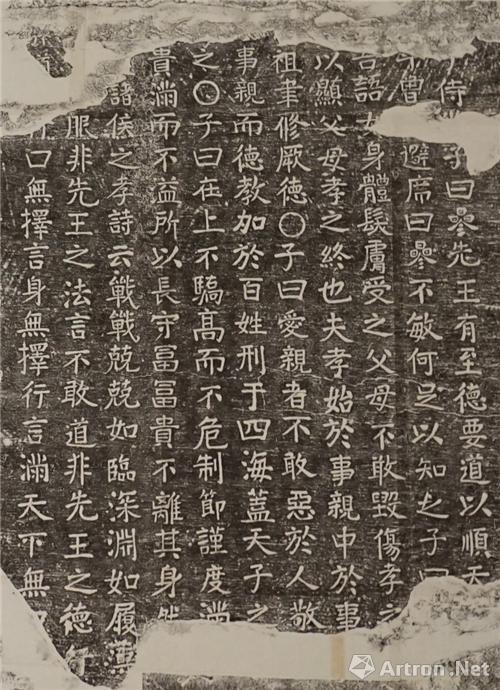 侍子曰參先王有至德要道以順天
曾避席曰參不敏何足以知之子曰
語身體髮膚受之父母不敢毀傷孝之
以顯父母孝之終也夫孝始於事親中於事
祖聿修厥德〇子曰愛親者不敢惡於人敬
事親而德教加於百姓刑于四海蓋天子之
之〇子曰在上不驕高而不危制節謹度滿
貴滿而不益所以長守冨冨貴不離其身然
諸侯之孝詩云戰戰兢兢如臨深淵如履薄
服非先王之法言不敢道非先王之德行
口無擇言身無擇行言滿天下無
Artron.Net